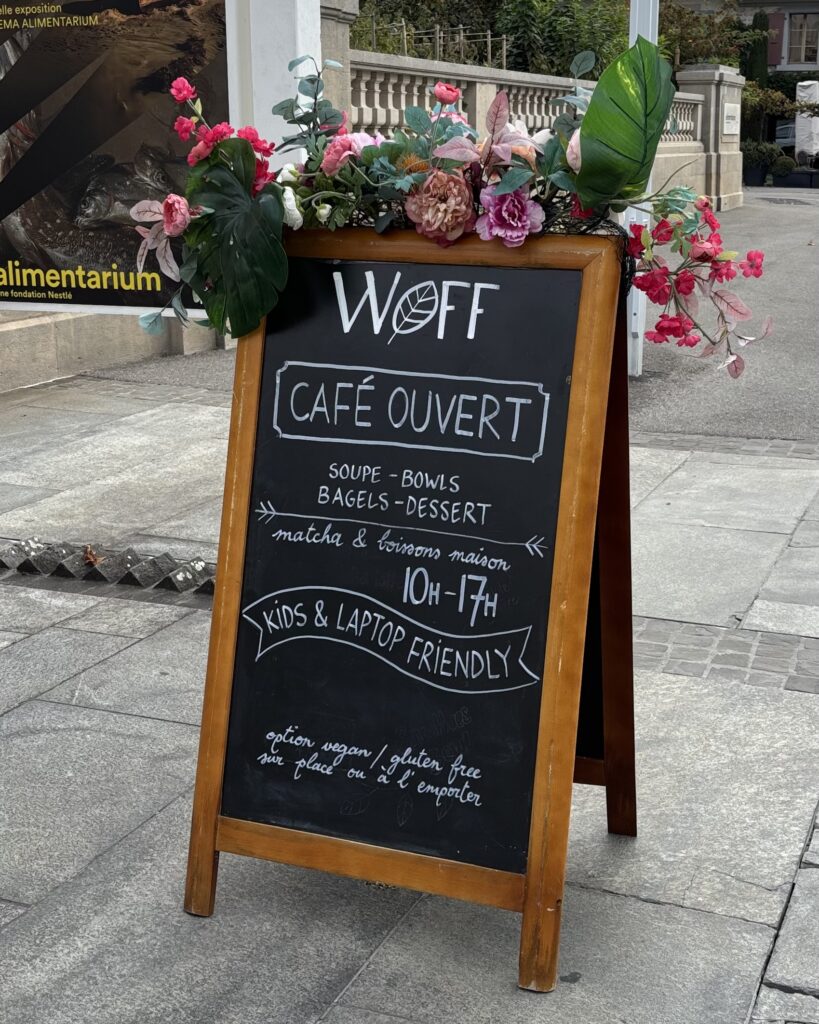 elle exposition
EMA ALIMENTARIUM
alimentarium
ne fondation Nestlé
WOFF
CAFÉ OUVERT
SOUPE - BOWLS
BAGELS - DESSERT
matcha & boissons maison
10H - 17H
KIDS & LAPTOP FRIENDLY
option vegan / gluten free
sur place ou à l'emporter